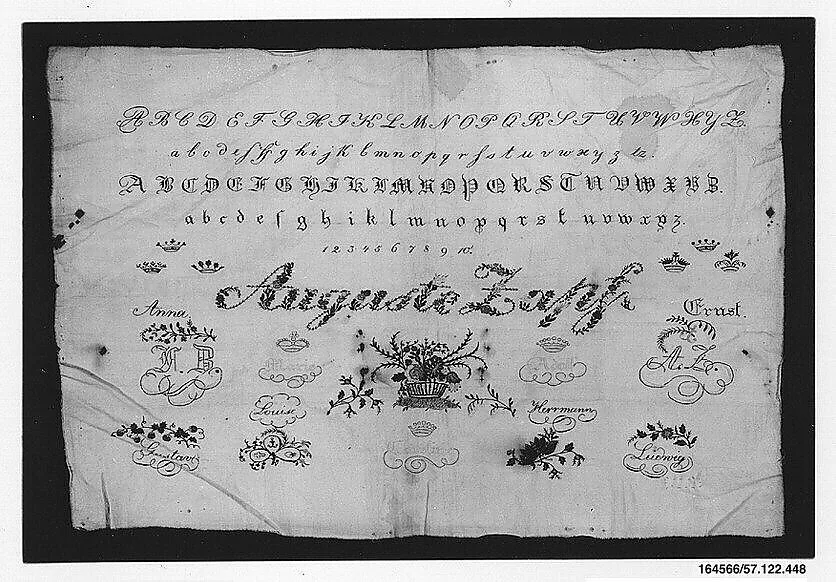 A B C D E F G H I K L M N O P Q R S T U V W X Y Z.
a b c d e f ſf g h i j k l m n o p q r s s t u v w x y z tz.
A B C D E F G H I K L M N O P Q R S T U V W X Y Z.
a b c d e ſ g h i k l m n o p q r s t u v w x y z.
1 2 3 4 5 6 7 8 9 10.
Auguste Zapf
Anna
Ernst.
A. Z.
Louise
Herrmann
Gustav
Ludwig
164566/57.122.448